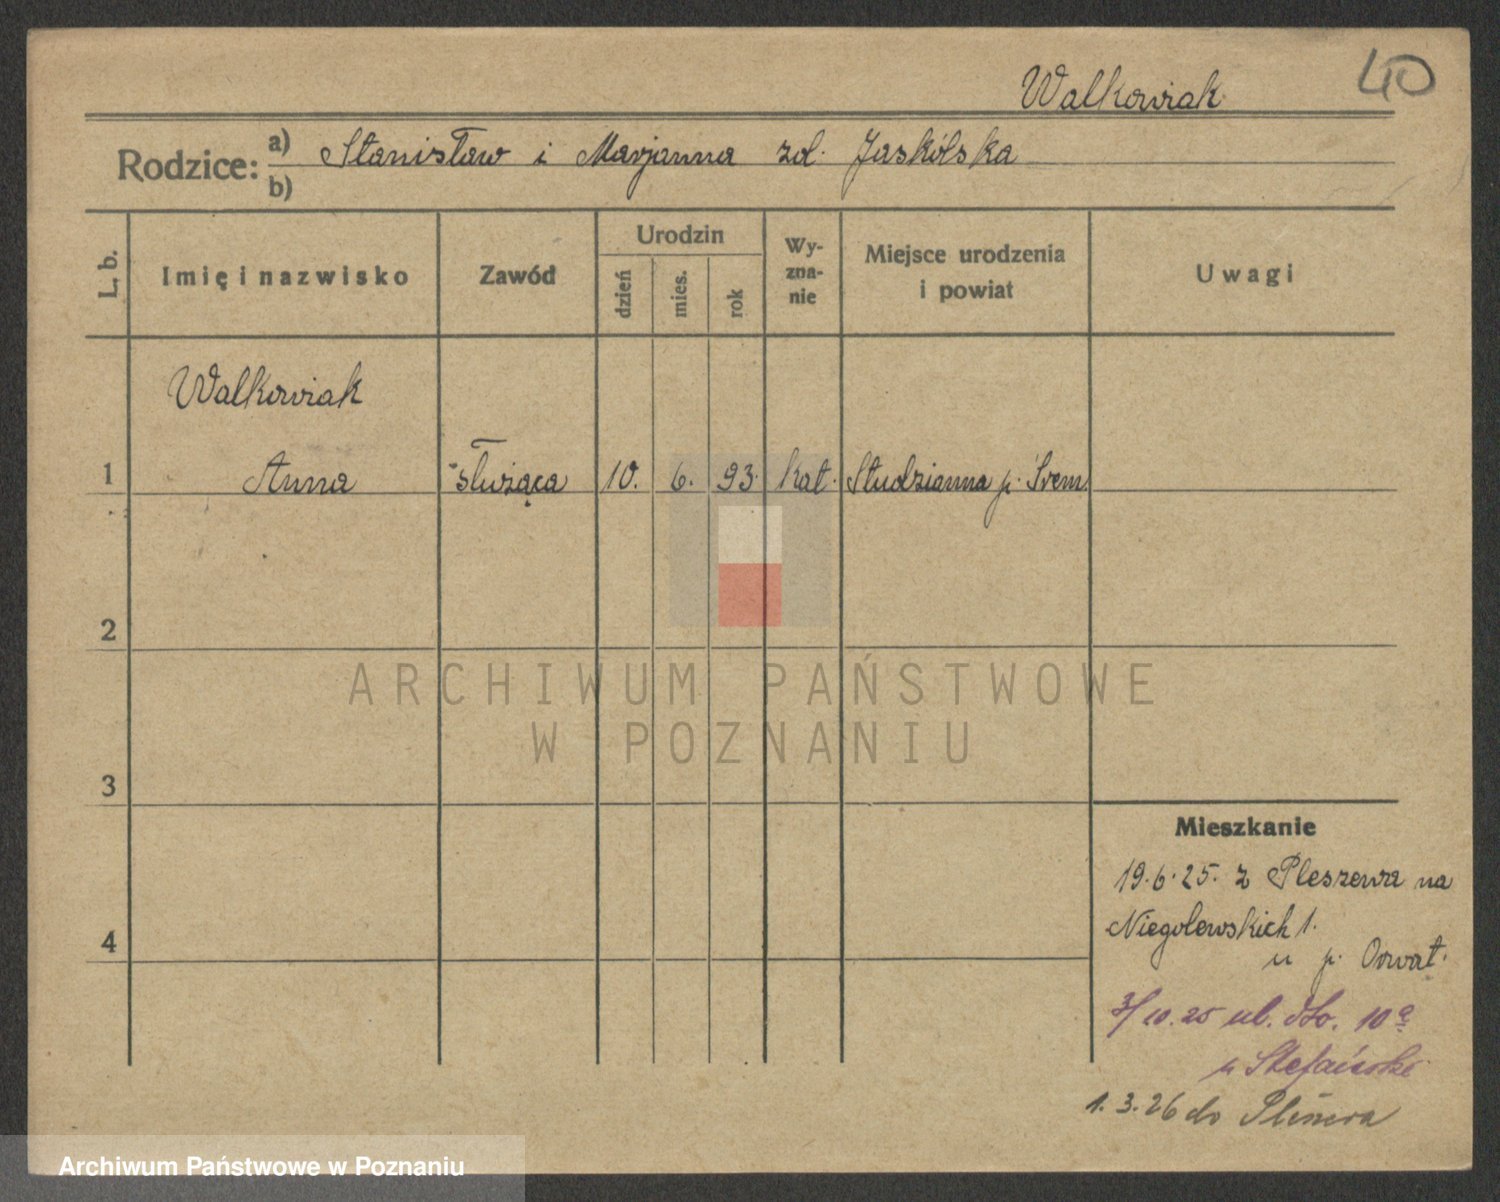 Walkowiak
40
Rodzice: a) Stanisław i Marjanna zd. Jaskólska
b)
L. b.
Imię i nazwisko
Zawód
Urodzin
dzień
mies.
rok
Wy-
zna-
nie
Miejsce urodzenia
i powiat
Uwagi
Walkowiak
1 Anna służąca 10. 6. 93. kat. Studzianna p. Śrem
2
3
4
Mieszkanie
19.6.25. z Pleszewa na
Niegolewskich 1.
u p. Orwat.
3/10.25 ul. 10a
u Stefański
1.3.26 do
ARCHIWUM PAŃSTWOWE
W POZNANIU
Archiwum Państwowe w Poznaniu